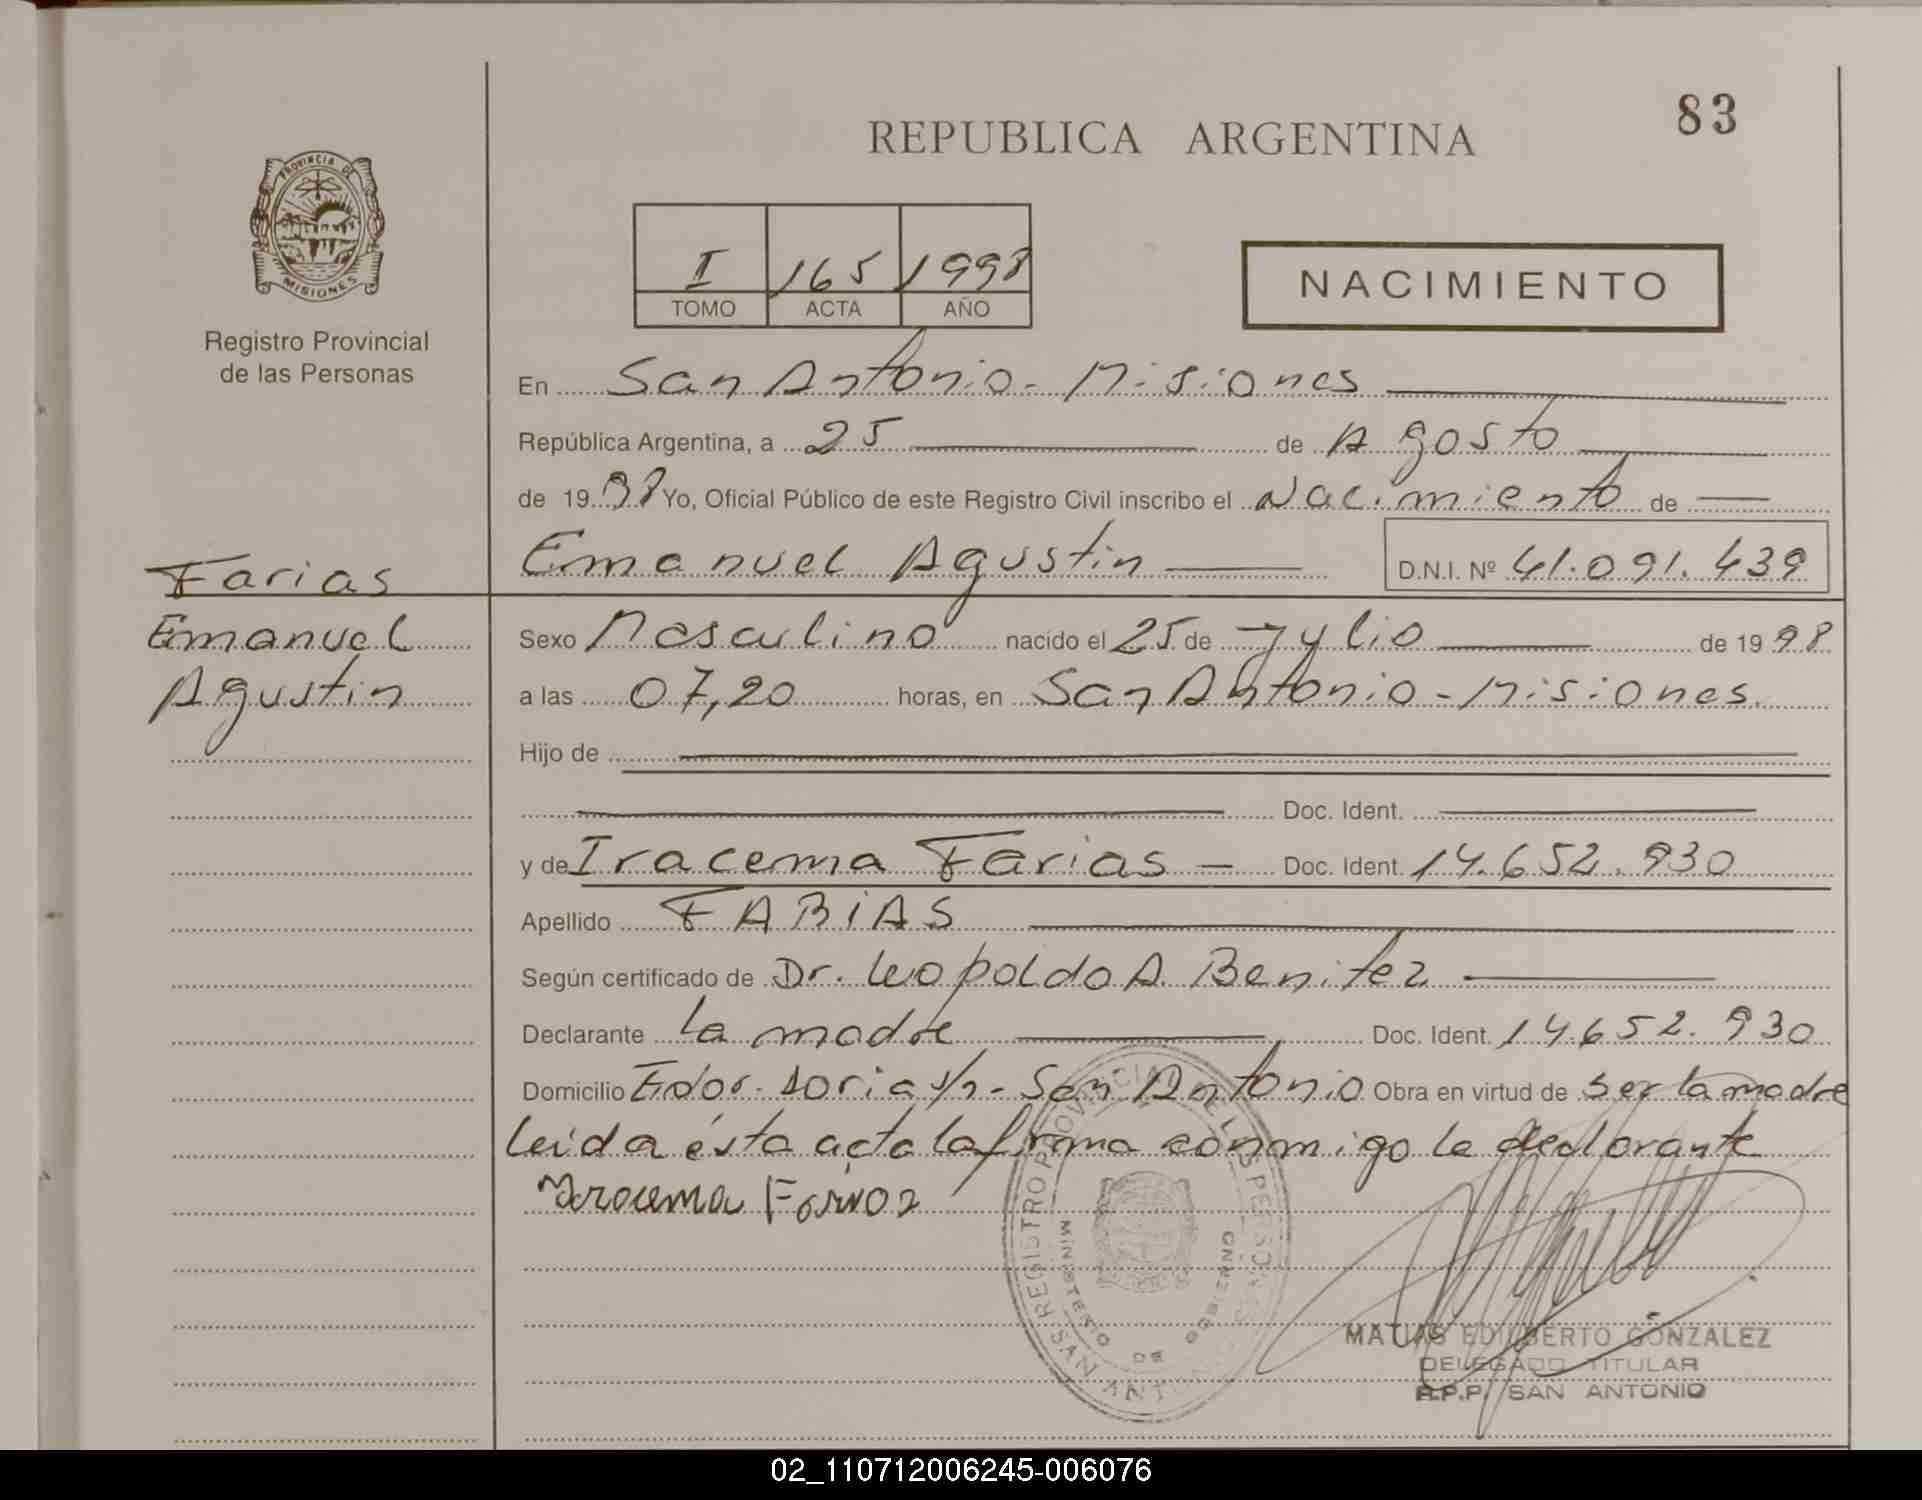 83
REPUBLICA ARGENTINA
PROVINCIA DE
MISIONES
Registro Provincial
de las Personas
I 165 1998
TOMO ACTA AÑO
NACIMIENTO
En San Antonio - Misiones
República Argentina, a 25 de Agosto
de 1998 Yo, Oficial Público de este Registro Civil inscribo el Nacimiento de
Emanuel Agustin D.N.I. Nº 41.091.439
Farias
Emanuel
Agustin
Sexo Masculino nacido el 25 de Julio de 1998
a las 07,20 horas, en San Antonio - Misiones.
Hijo de
Doc. Ident.
y de Iracema Farias - Doc. Ident. 14.652.930
Apellido FARIAS
Según certificado de Dr. Leopoldo A. Benitez
Declarante La madre Doc. Ident. 14.652.930
Domicilio Fdor. Soria s/n - San Antonio Obra en virtud de ser la madre
Leída ésta acta la firma conmigo la declarante
Iracema Farias
REGISTRO PROVINCIAL DE LAS PERSONAS
MINISTERIO DE GOBIERNO
SAN ANTONIO
MATIAS EDILBERTO GONZALEZ
DELEGADO TITULAR
R.P.P. SAN ANTONIO
02_110712006245-006076